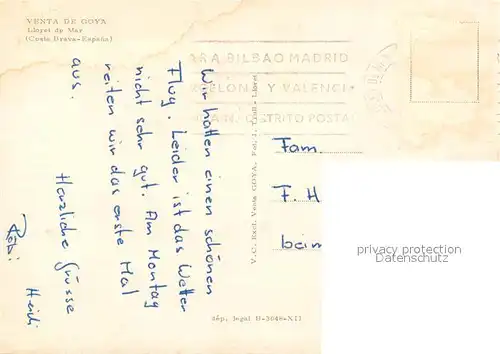 VENTA DE GOYA
Lloret de Mar
(Costa Brava-España)
PARA BILBAO MADRID
BARCELONA Y VALENCIA
DISTRITO POSTAL
Wir hatten einen schönen
Flug. Leider ist das Wetter
nicht sehr gut. Am Montag
reiten wir das erste Mal
aus.
Herzliche Grüsse
Heidi
V. C. Excl. Venta GOYA.
Dép. legal B-5048-XII
Fam.
F. H
beim
privacy protection
AnsichtskartenHandel.com